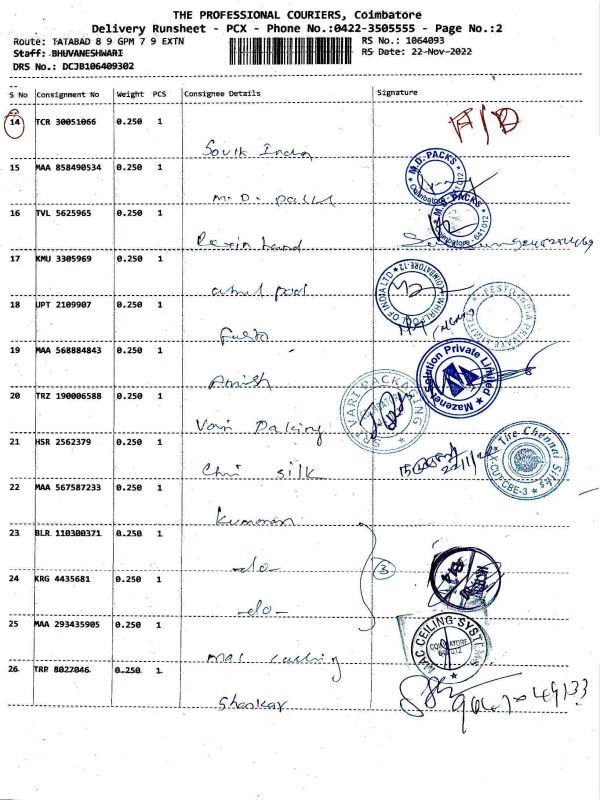 THE PROFESSIONAL COURIERS, Coimbatore
Delivery Runsheet - PCX - Phone No.:0422-3505555 - Page No.:2
Route: TATABAD 8 9 GPM 7 9 EXTN
RS No.: 1064093
Staff: BHUVANESHWARI
RS Date: 22-Nov-2022
DRS No.: DCJB106409302
S No Consignment No Weight PCS Consignee Details Signature
14 TCR 30051066 0.250 1
15 MAA 858490534 0.250 1
M.D. PACKS
Coimbatore 641 012
16 TVL 5625965 0.250 1
M.D. PACKS
Coimbatore 641 012
17 KMU 3305969 0.250 1
WHIRLPOOL OF INDIA LTD COIMBATORE-12
18 UPT 2109907 0.250 1
FESTO INDIA PRIVATE LIMITED
Festo
19 MAA 568884843 0.250 1
Mazenet Solution Private Limited
Amish
20 TRZ 190006588 0.250 1
SRI VARI PACKAGING
Vari Packing
21 HSR 2562379 0.250 1
The Chennai Silks
X-CUT-CBE-3
silk
22 MAA 567587233 0.250 1
Kumaran
23 BLR 110300371 0.250 1
-do-
3
24 KRG 4435681 0.250 1
-do-
25 MAA 293435905 0.250 1
MAC CEILING SYSTEMS
COIMBATORE
mac
26 TRP 8027046 0.250 1
Shankar